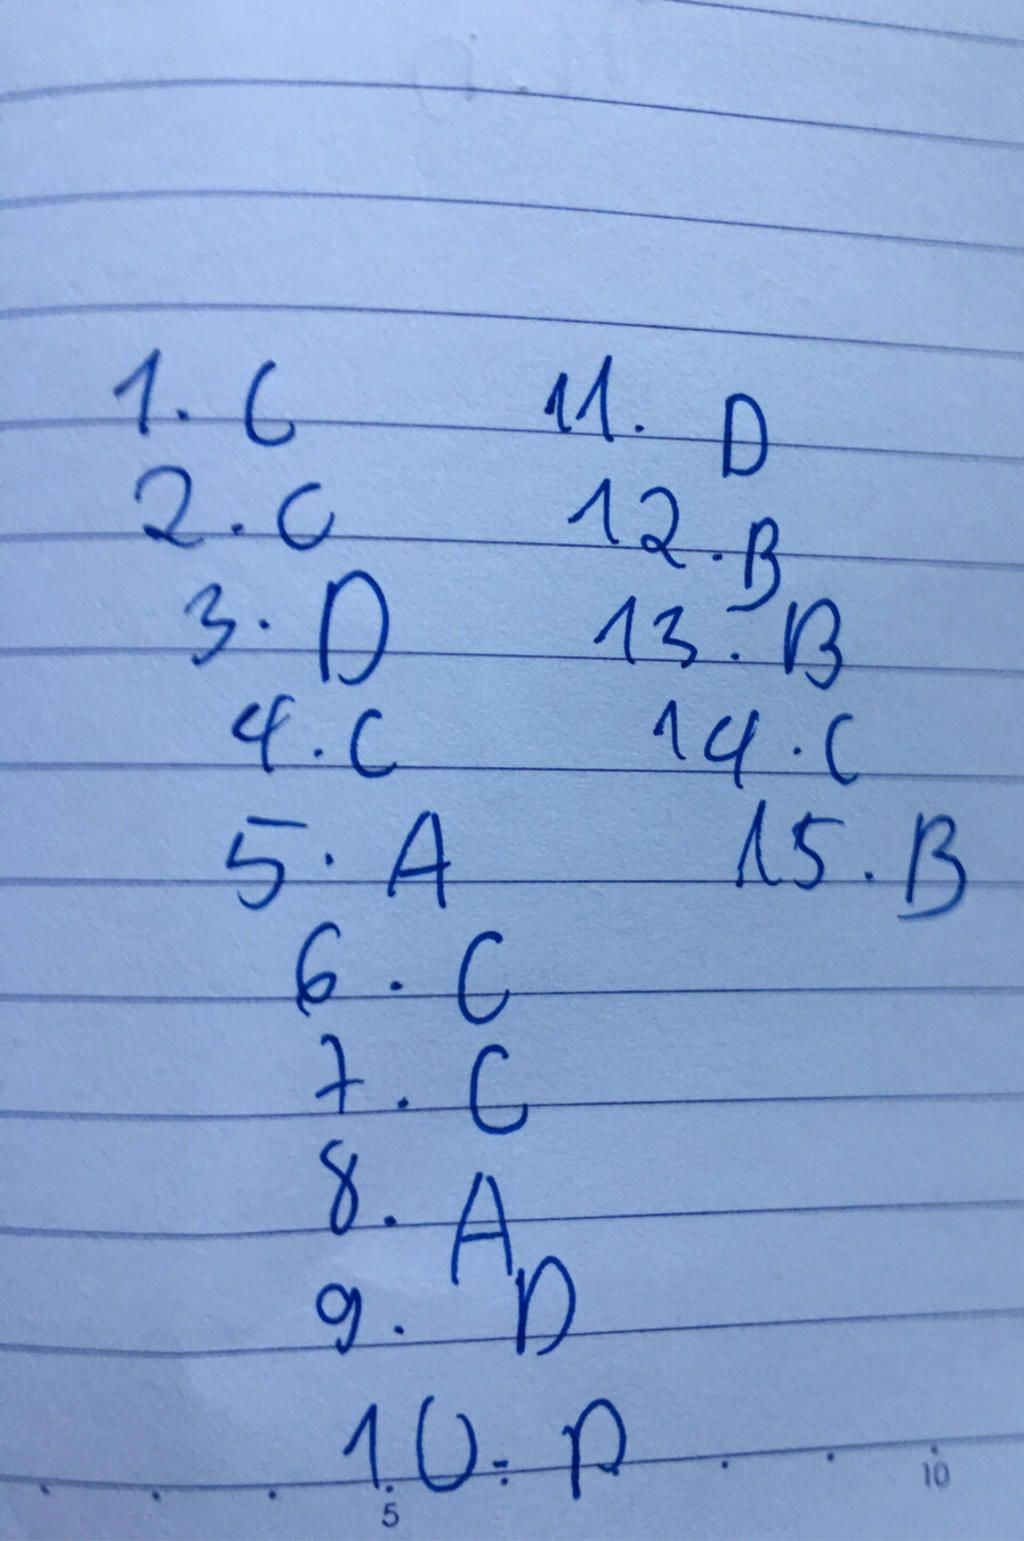 1. C
2. C
3. D
4. C
5. A
6. C
7. C
8. A
9. D
10. D
11. D
12. B
13. B
14. C
15. B
5
10